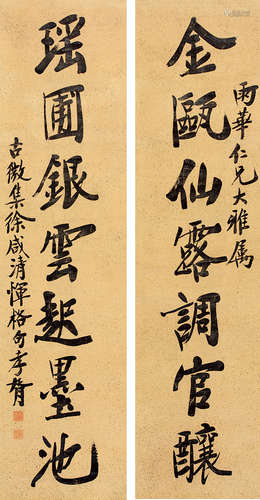 金甌仙露調官釀
雨華仁兄大雅属
瑶圃銀雲起墨池
古微集徐咸清惲格句 李胥